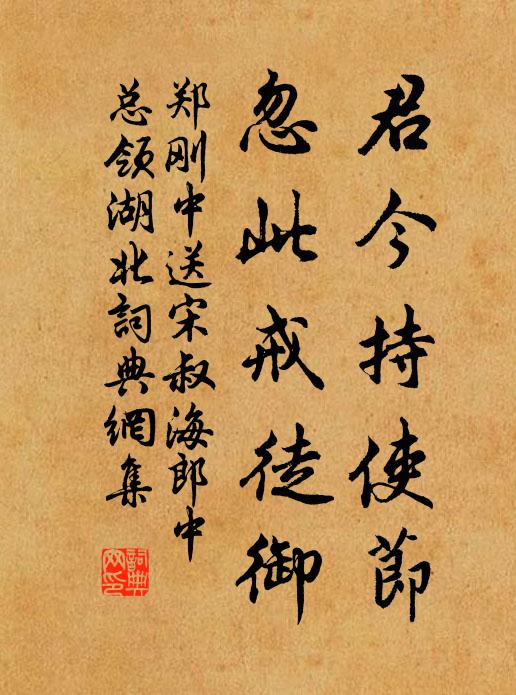 君今持使節
忽此戒徒御
郑刚中送宋叔海郎中
总领湖北詞典網集
詞典网印